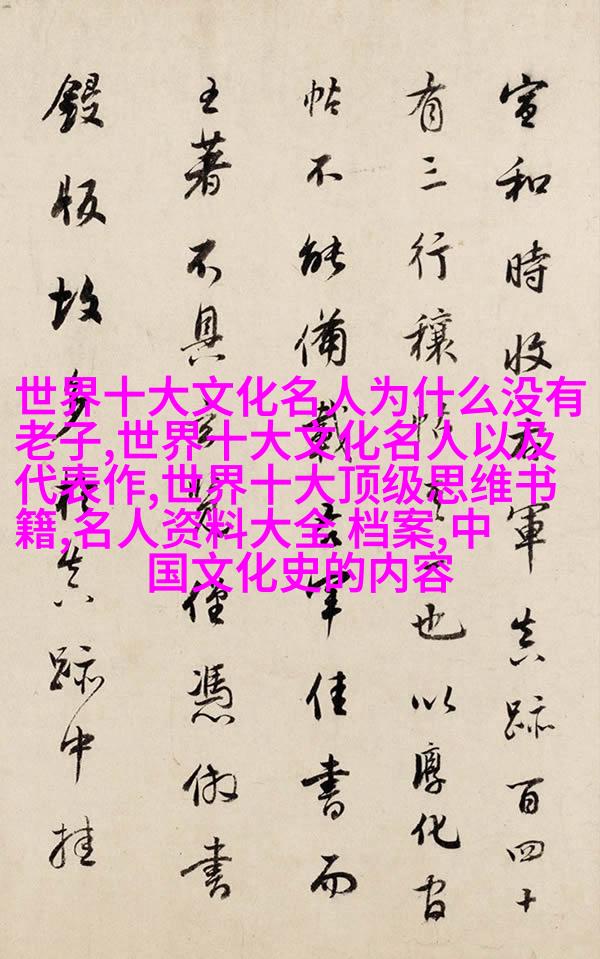 世界十大文化名人为什么没有
老子,世界十大文化名人以及
代表作,世界十大顶级思维书
籍,名人资料大全 档案,中
国文化史的内容
宣和時收右軍真跡百四十
有三行穰帖其一也以淳化官
帖不能備載右軍佳書而
王著不具玄覽僅憑倣書
鋟版故多真跡中挂